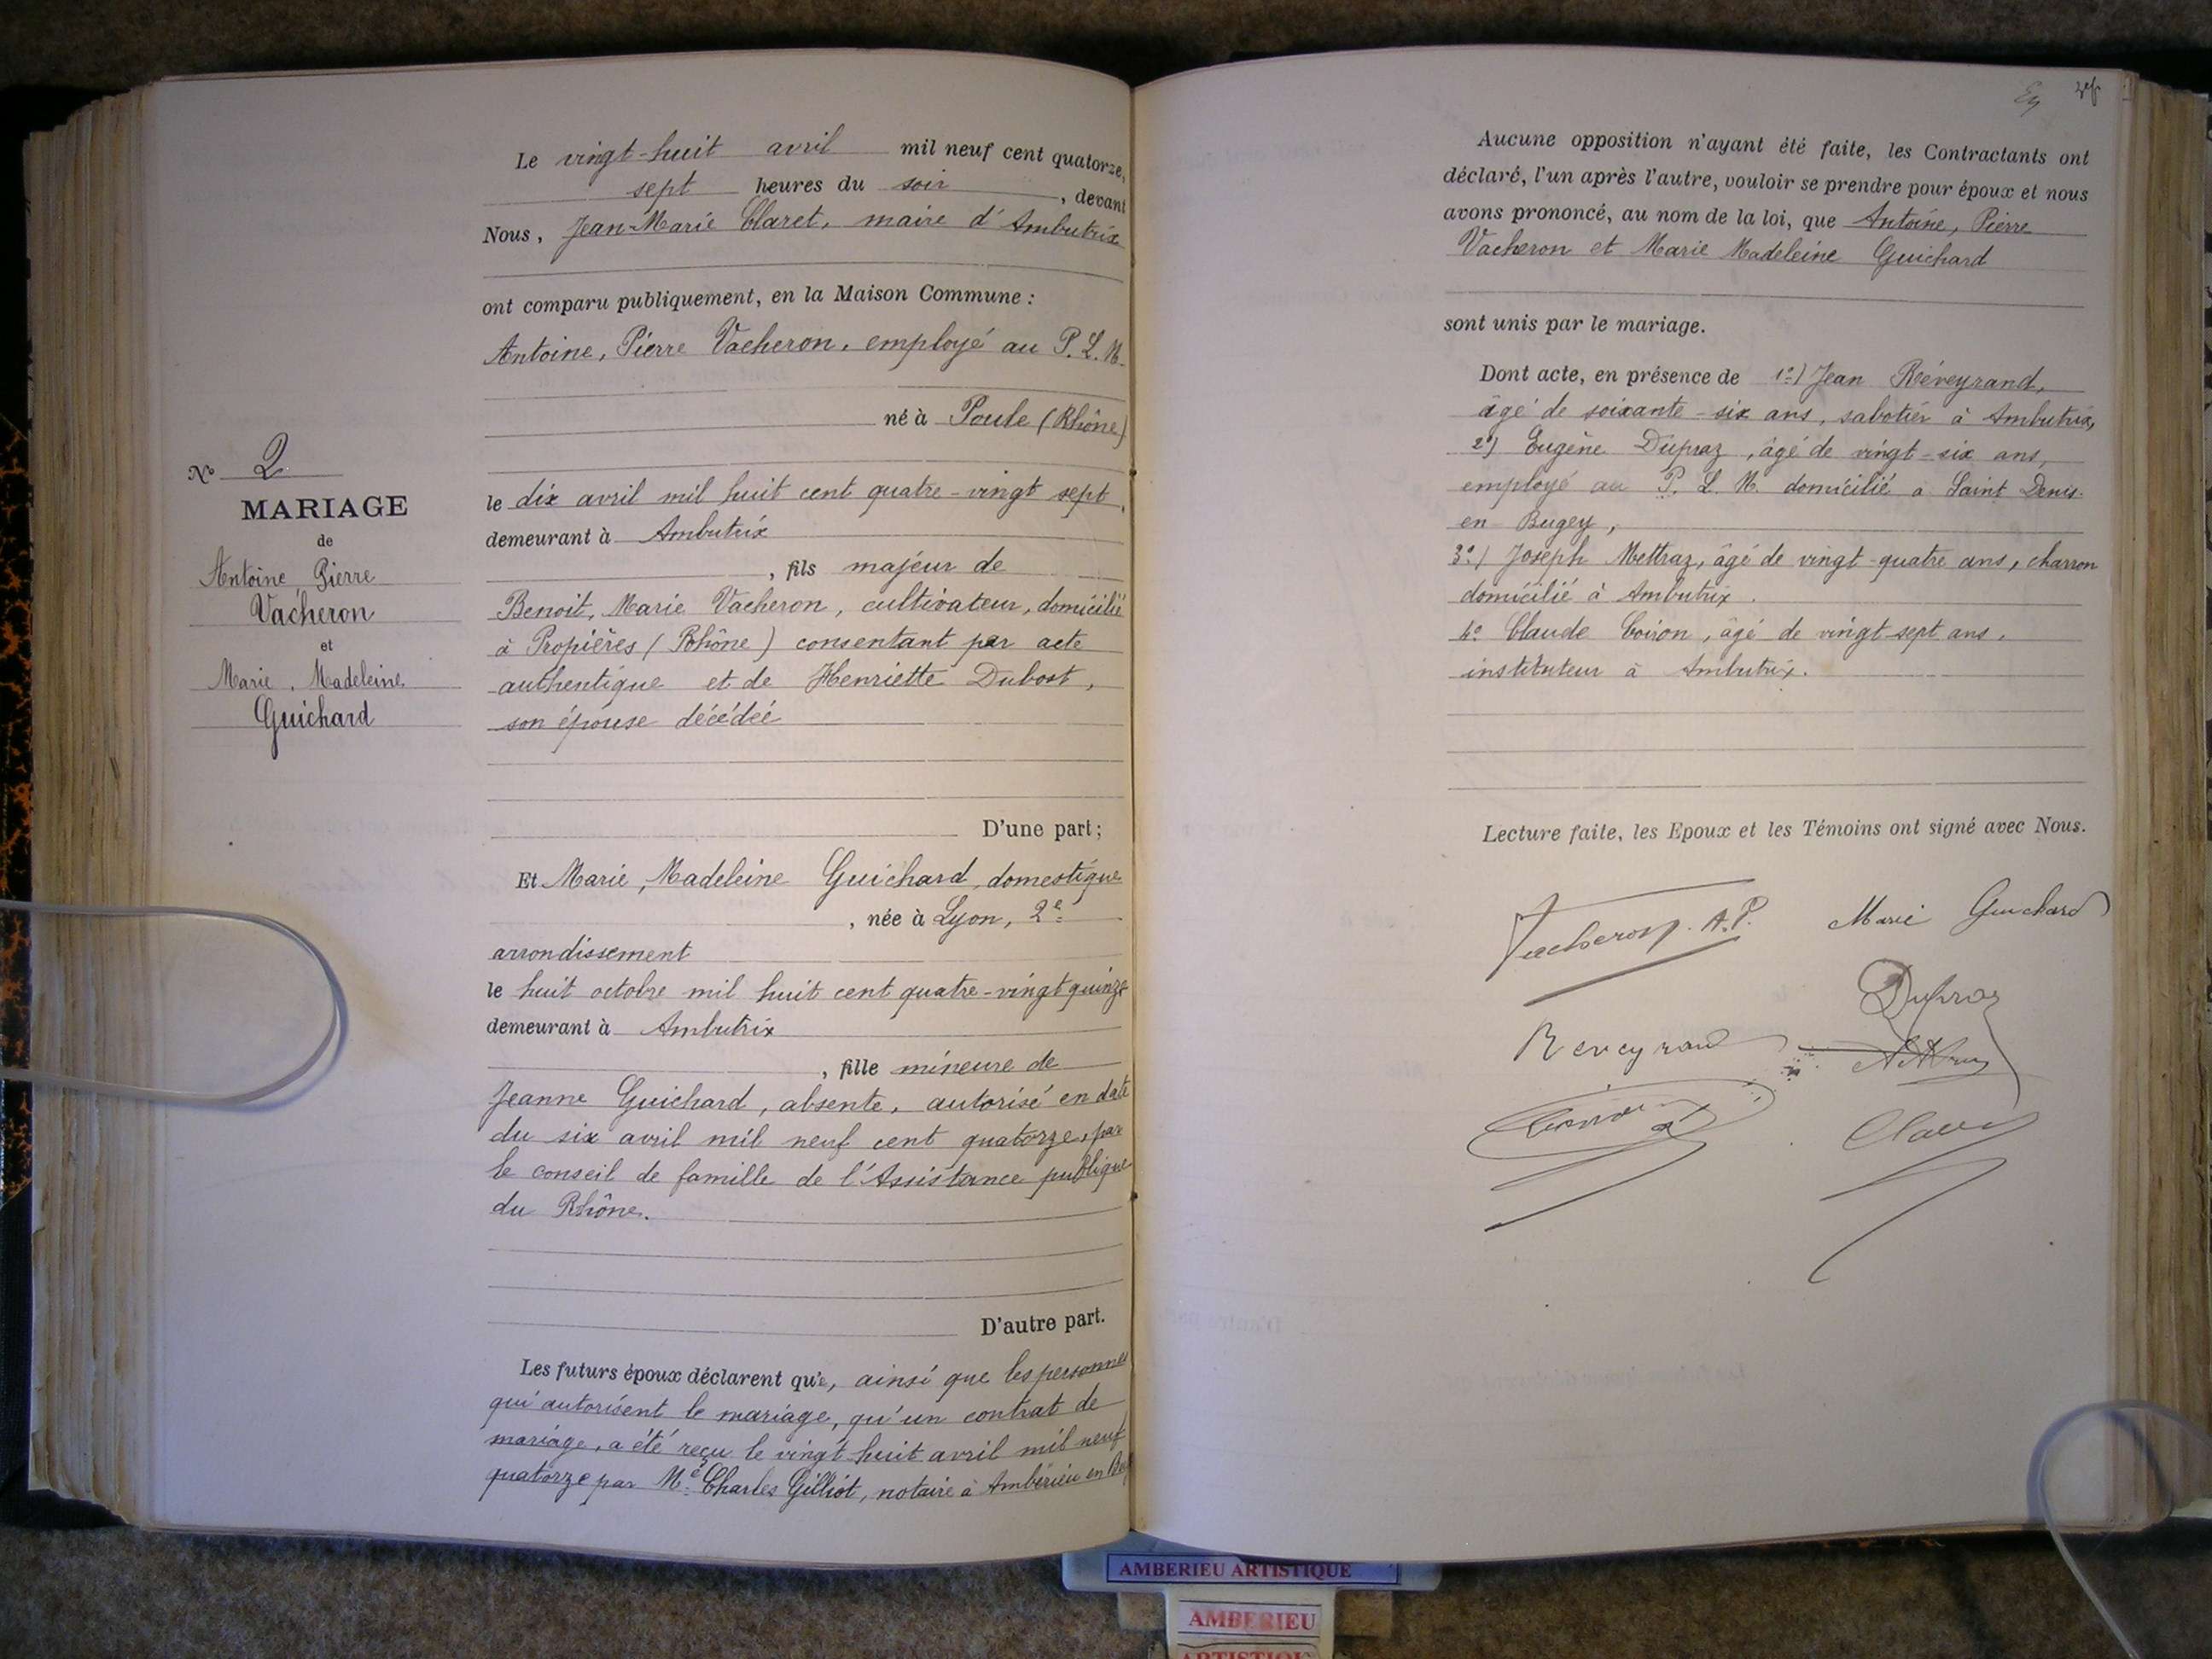 Le vingt-huit avril mil neuf cent quatorze,
sept heures du soir, devant
Nous, Jean-Marie Claret, maire d'Ambutrix
ont comparu publiquement, en la Maison Commune :
Antoine, Pierre Vacheron, employé au P. L. M.
né à Poule (Rhône)
le dix avril mil huit cent quatre-vingt sept,
demeurant à Ambutrix
, fils majeur de
Benoit, Marie Vacheron, cultivateur, domicilié
à Propières (Rhône) consentant par acte
authentique et de Henriette Dubost,
son épouse décédée
D'une part ;
N° 2
MARIAGE
de
Antoine, Pierre
Vacheron
et
Marie, Madeleine
Guichard
Et Marie, Madeleine Guichard, domestique
, née à Lyon, 2e
arrondissement
le huit octobre mil huit cent quatre-vingt quinze
demeurant à Ambutrix
, fille mineure de
Jeanne Guichard, absente, autorisé en date
du six avril mil neuf cent quatorze, par
le conseil de famille de l'Assistance publique
du Rhône.
D'autre part.
Les futurs époux déclarent que, ainsi que les personnes
qui autorisent le mariage, qu'un contrat de
mariage, a été reçu le vingt huit avril mil neuf
quatorze par Me Charles Gilliot, notaire à Ambérieu en
Aucune opposition n'ayant été faite, les Contractants ont
déclaré, l'un après l'autre, vouloir se prendre pour époux et nous
avons prononcé, au nom de la loi, que Antoine, Pierre
Vacheron et Marie Madeleine Guichard
sont unis par le mariage.
Dont acte, en présence de 1°) Jean Réveyrand,
âgé de soixante-six ans, sabotier à Ambutrix,
2°) Eugène Dupraz, âgé de vingt-six ans,
employé au P. L. M. domicilié à Saint Denis-
en Bugey,
3°) Joseph Mettraz, âgé de vingt-quatre ans, charron
domicilié à Ambutrix.
4° Claude Coiron, âgé de vingt-sept ans,
instituteur à Ambutrix.
Lecture faite, les Epoux et les Témoins ont signé avec Nous.
Vacheron. A.P. Marie Guichard
Dupraz
Reveyrand
Claret
AMBERIEU ARTISTIQUE
AMBERIEU